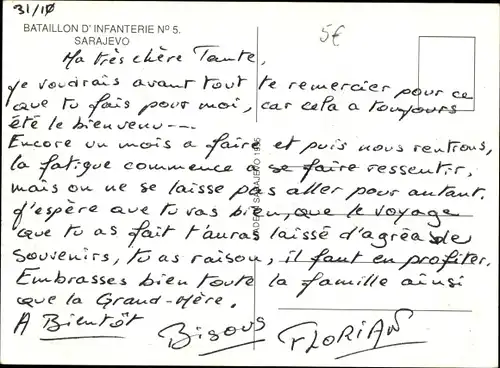 31/10
BATAILLON D'INFANTERIE Nº 5.
SARAJEVO
5€
Ma très chère Tante,
je voudrais avant tout te remercier pour ce
que tu fais pour moi, car cela a toujours
été le bienvenu---
Encore un mois a faire et puis nous rentrons,
la fatigue commence a se faire ressentir,
mais on ne se laisse pas aller pour autant.
J'espère que tu vas bien, que le voyage
que tu as fait t'auras laissé d'agréables
souvenirs, tu as raison, il faut en profiter.
Embrasses bien toute la famille ainsi
que la Grand-Mère.
A Bientôt
Bisous FLORIAN
SARAJEVO 1995